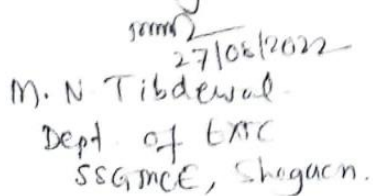 27/08/2022
M. N Tibdewal
Dept of EXTC
SSGMCE, Shegaon.